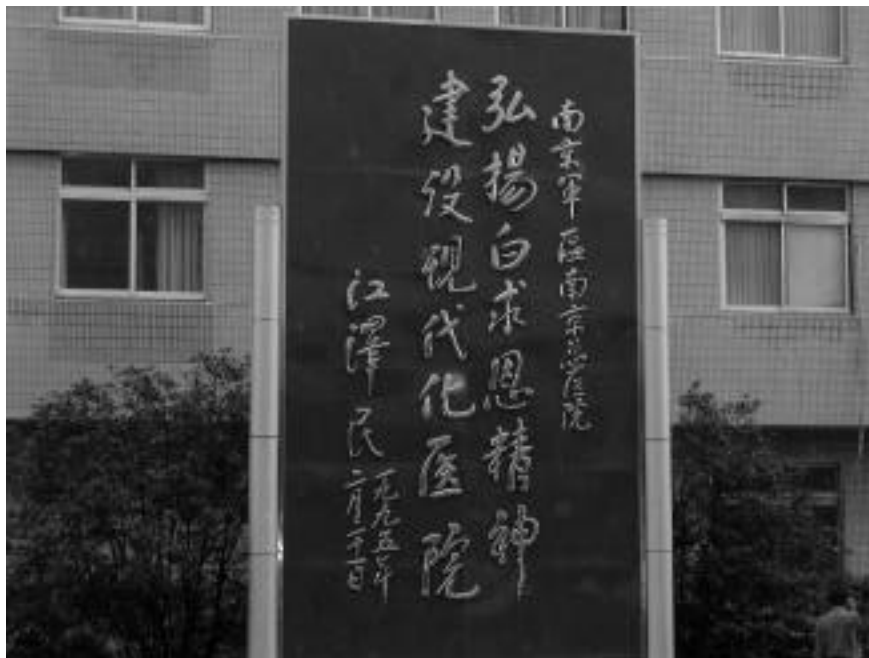 南京軍區南京总医院
弘揚白求恩精神
建设现代化医院
江澤民
一九九五年
二月二十一日